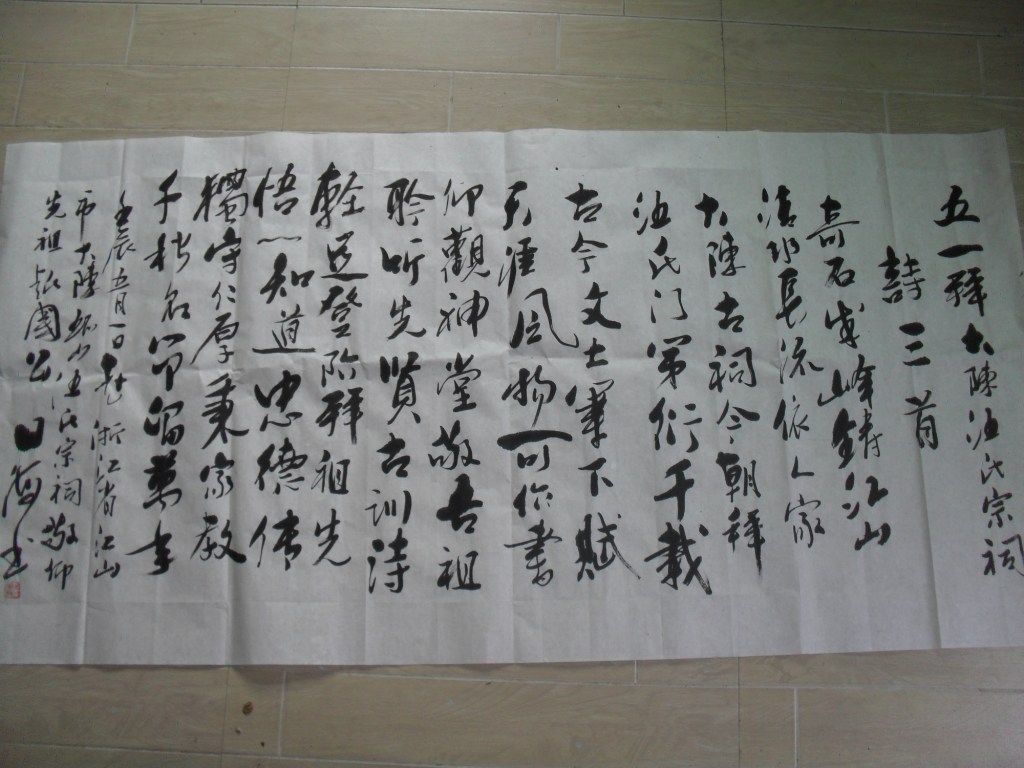 五一拜大陳汪氏宗祠
詩三首
奇石成峰鑄江山
清水長流依人家
大陳古祠今朝拜
汪氏门第衍千载
古今文士筆下赋
天涯風物可作書
仰觀神堂敬吾祖
聆听先贤古训诗
轻足登阶拜祖先
悟心知道忠德传
獨守仁厚秉家教
千秋名节留萬年
壬辰五月一日赴浙江省江山
市大陳 汪氏宗祠敬仰
先祖越國公 日 书